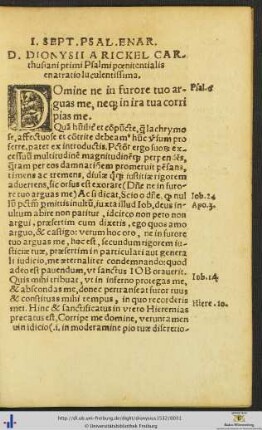 I. SEPT. PSAL. ENAR.
D. DIONYSII A RICKEL CAR
thusiani primi Psalmi pœnitentialis
enarratio luculentissima.
DOmine ne in furore tuo ar Psal. 6
guas me, neq; in ira tua corri
pias me.
Quã humilit' et cõpũcte, q̃ lachrymo
se, affectuose et cõtrite debeam⁹ hũc
proferre, patet ex introductis. ergo suorũ ex
cessuũ multitudinẽ magnitudinẽq; per
quam per eos damnationẽ promeruit
timens ac tremens, diuiæ q; iustitiæ rigorem
aduertens, sic orsus est exorare (Dñe ne in furo
re tuo arguas me) Ac si dicat, Scio dñe, q nul Iob. 24
lũ iuxta illud Iob, deus in Apo. 3.
ultum abire non patitur, idcirco non peto non
argui, præsertim cum dixeris, ego quos amo
arguo, & castigo: verum hoc oro, ne in furore
tuo arguas me, hoc est, secundum rigorem iu
stitiæ tuæ, præsertim in particulari aut genera
li iudicio, me æternaliter condemnando: quod
adeo est pauendum, vt sanctus IOB orauerit.
Quis mihi tribuat, vt in inferno protegas me, Iob. 14
& abscondas me, donec pertranseat furor tuus
& constituas mihi tempus, in quo recorderis
mei. Hinc & sanctificatus in vtero Hieremias Hiere. 10.
precatus est, Corripe me domine, verunt amen
in iudicio (.i. in moderamine pio tuæ discretio-
http://dl.ub.uni-freiburg.de/diglit/dionysius1532/0011
© Universitätsbibliothek Freiburg